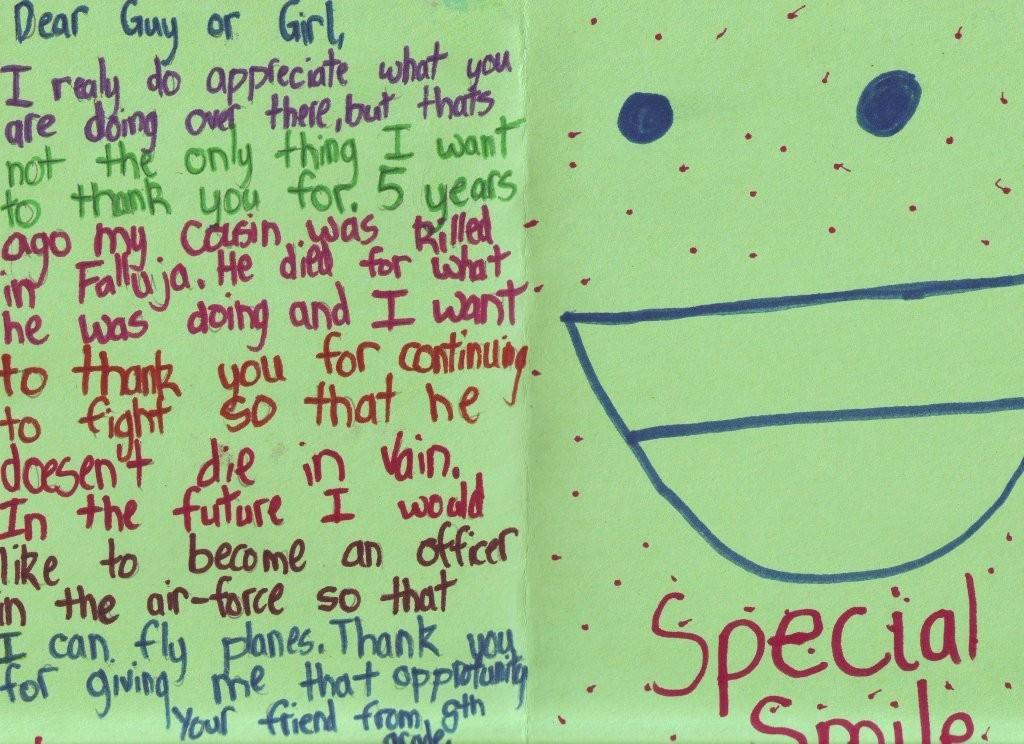 Dear Guy or Girl,
I realy do appreciate what you
are doing over there, but thats
not the only thing I want
to thank you for. 5 years
ago my casin was killed
in Falluja. He died for what
he was doing and I want
to thank you for continuing
to fight so that he
doesen't die in vain.
In the future I would
like to become an officer
in the air-force so that
I can fly planes. Thank you
for giving me that opprotunity
Your friend from, 8th
grade.
Special
Smile